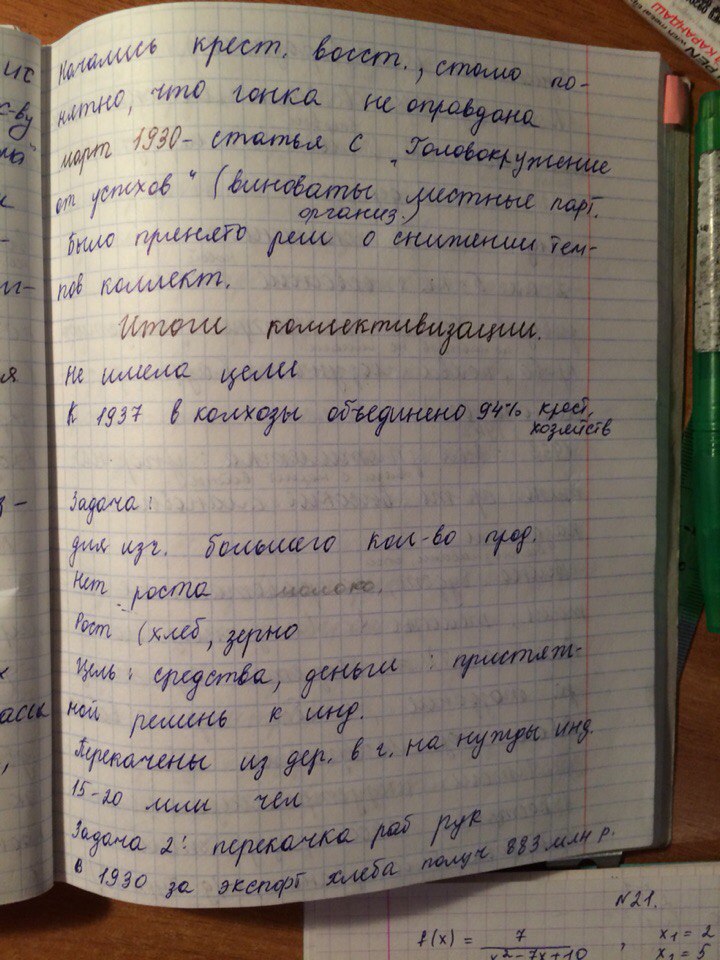 Начались крест. восст., стало по-
нятно, что гонка не оправдана
март 1930 - статья С "Головокружение
от успехов" (виноваты местные парт.
организ.)
Было принято реш о снижении тем-
пов коллект.
Итоги коллективизации.
Не имела цели
К 1937 в колхозы объединено 94% крест.
хозяйств
Задача:
для изч. большего кол-во прод.
Нет роста
молоко.
Рост (хлеб, зерно
Цель: средства, деньги: пристяж-
ной ремень к инд.
Перекачены из дер. в г. на нужды инд.
15-20 млн чел
Задача 2: перекачка раб рук
в 1930 за экспорт хлеба получ 883 млн р.
ис
с-ву
я
асы
КАРАНДАШ
PEN
N21.
f(x) = 7 / x²-7x+10 , x₁ = 2
x₂ = 5